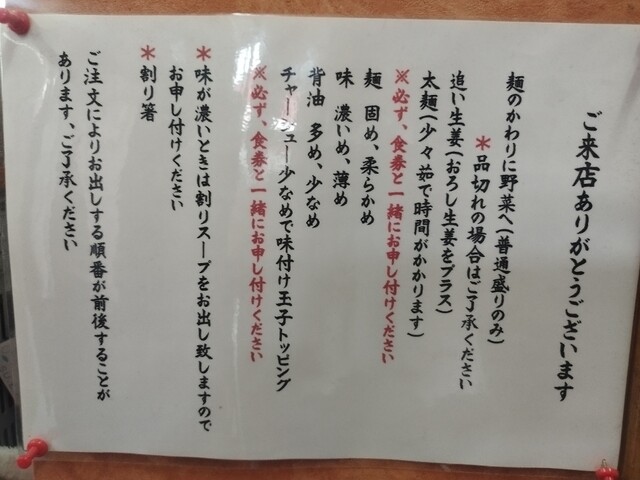 ご来店ありがとうございます
麺のかわりに野菜へ(普通盛りのみ)
＊品切れの場合はご了承ください
追い生姜(おろし生姜をプラス)
太麺(少々茹で時間がかかります)
※必ず、食券と一緒にお申し付けください
麺 固め、柔らかめ
味 濃いめ、薄め
背油 多め、少なめ
チャーシュー少なめで味付け玉子トッピング
※必ず、食券と一緒にお申し付けください
＊味が濃いときは割りスープをお出し致しますので
お申し付けください
＊割り箸
ご注文によりお出しする順番が前後することが
あります、ご了承ください